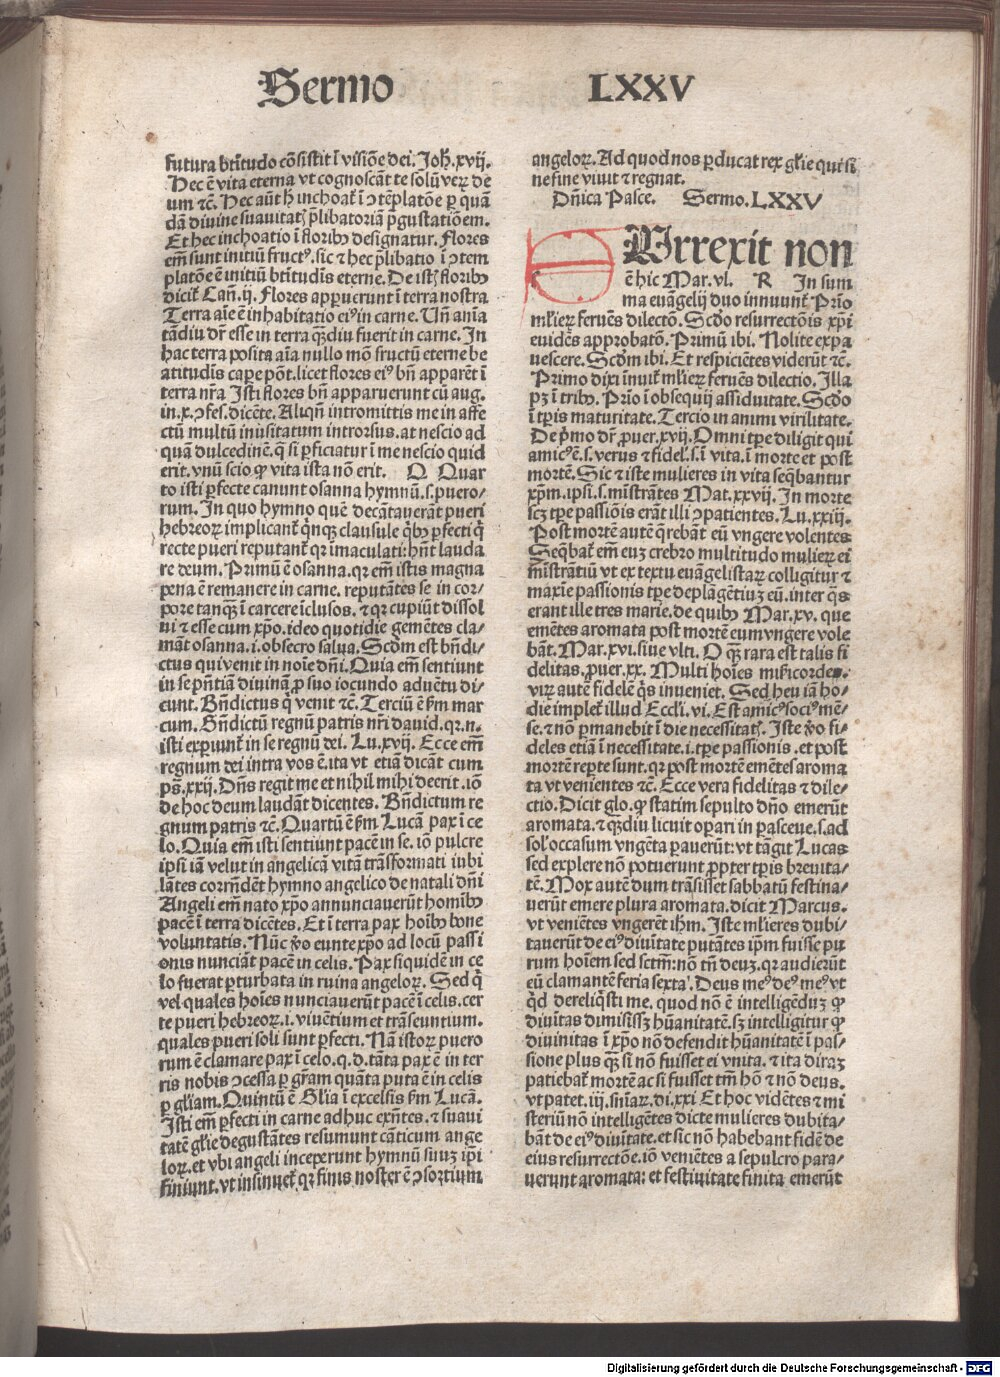 Sermo LXXV
futura btĩtudo cõsistit ĩ visiõe dei. Joh̃. xvij.
Hec ẽ vita eterna vt cognoscãt te solũ veꝝ de
um ⁊c̃. Hec aũt h̃ inchoat᷑ ĩ ↄtẽplatõe ꝑ quã
dã diuine suauitatꝭ p̃libatoriã p̃gustatiõem.
Et hec inchoatio ĩ floribꝰ designatur. Flores
em̃ sunt initiũ fructꝰ. sic ⁊ hec p̃libatio ĩ ↄtem
platõe ẽ initiũ btĩtudĩs eterne. De istꝭ floribꝰ
dicit᷑ Cañ. ij. Flores apparuerunt ĩ terra nostra
Terra aĩe ẽ inhabitatio eiꝰ in carne. Uñ anĩa
tãdiu dr̃ esse in terra qãdiu fuerit in carne. In
hac terra posita aĩa nullo mõ fructũ eterne be
atitudĩs capere põt. licet flores eiꝰ bñ apparẽt ĩ
terra nr̃a Isti flores bñ apparuerunt cũ aug.
in. x. ↄfes. dicẽte. Aliqñ intromittis me in affe
ctũ multũ inusitatum introrsus. at nescio ad
quã dulcedinẽ. q̃ si ꝑficiatur ĩ me nescio quid
erit. vnũ scio ꝙ vita ista nõ erit. Q Quar
to isti ꝑfecte canunt osanna hymnũ. s. puero/
rum. In quo hymno quẽ decãtauerãt pueri
hebreoꝝ implicant᷑ q̃nqꝫ clausule q̃bꝰ ꝑfecti q̃
recte pueri reputant᷑ qꝛ ĩmaculati: hñt lauda
re deum. Primũ ẽ osanna. qꝛ em̃ istis magna
pena ẽ remanere in carne. reputãtes se in cor/
pore tanqꝫ ĩ carcere ĩclusos. ⁊ qꝛ cupiũt dissol
ui ⁊ esse cum xp̃o. ideo quotidie gemẽtes cla/
mãt osanna. i. obsecro salua. Scd̃m est bñdi/
ctus qui venit in noĩe dñi. Quia em̃ sentiunt
in se pñtiã diuinã ꝓ suo iocundo aduẽtu di/
cunt. Bñdictus q̃ venit ⁊c̃. Terciũ ẽ ẜm mar
cum. Bñdictũ regnũ patris nr̃i dauid. qꝛ. n.
isti exꝑiunt᷑ in se regnũ dei. Lu. xvij. Ecce em̃
regnum dei intra vos ẽ. ita vt etiã dicãt cum
pš. xxij. Dñs regit me et nihil mihi deerit. iõ
de hoc deum laudãt dicentes. Bñdictum re
gnum patris ⁊c̃. Quartũ ẽ ẜm Lucã pax ĩ ce
lo. Quia em̃ isti sentiunt pacẽ in se. iõ pulcre
ipsi iã velut in angelicã vitã trãsformati iubi
lãtes corrñdẽt hymno angelico de natali dñi
Angeli em̃ nato xp̃o annunciauerũt homĩbꝰ
pacẽ ĩ terra dicẽtes. Et ĩ terra pax hoĩbꝰ bone
voluntatis. Nũc ꝟo eunte xp̃o ad locũ passi
onis nunciãt pacẽ in celis. Pax siquidẽ in ce
lo fuerat ꝑturbata in ruina angeloꝝ. Sed q̃
vel quales hoĩes nunciauerũt pacẽ ĩ celis. cer
te pueri hebreoꝝ. i. viuẽtium et trãseuntium.
quales pueri soli sunt ꝑfecti. Nã istoꝝ puero
rum ẽ clamare pax ĩ celo. q. d. tãta pax ẽ in ter
ris nobis ↄcessa ꝑ gr̃am quãta puta ẽ in celis
ꝑ gl̃iam. Quintũ ẽ Gl̃ia ĩ excelsis ẜm Lucã.
Isti em̃ ꝑfecti in carne adhuc exñtes. ⁊ suaui
tatẽ gl̃ie degustãtes resumunt cãticum ange
loꝝ. et vbi angeli inceperunt hymnũ suuꝫ ip̃i
finiunt. vt insinuet᷑ qꝛ finis noster ẽ ↄsortium
angeloꝝ. Ad quod nos ꝑducat rex gl̃ie qui si
ne fine viuit ⁊ regnat.
Dñica Pasce. Sermo. LXXV
SUrrexit non
ẽ hic Mar. vl. R In sum
ma euãgelij duo innuunt᷑ Prĩo
ml̃ieꝝ feruẽs dilectõ. Scd̃o resurrectõis xp̃i
euidẽs approbatõ. Primũ ibi. Nolite expa
uescere. Scd̃m ibi. Et respiciẽtes viderũt ⁊c̃.
Primo dixi ĩnuit᷑ ml̃ieꝝ feruẽs dilectio. Illa
pꝫ ĩ tribꝰ. Prĩo ĩ obsequij assiduitate. Scd̃o
ĩ tꝑis maturitate. Tercio in animi virilitate.
De p̃mo dr̃ ꝓuer. xvij. Omni tꝑe diligit qui
amicꝰ ẽ. s. verus ⁊ fidel̃. s. ĩ vita. ĩ morte et post
mortẽ. Sic ⁊ iste mulieres in vita seq̃bantur
xp̃m. ipsi. s. mĩstrãtes Mat. xxvij. In morte
scꝫ tꝑe passiõis erãt illi ↄpatientes. Lu. xxiij.
Post mortẽ autẽ q̃rebãt eũ vngere volentes
Seq̃bat᷑ em̃ euꝫ crebro multitudo mulieꝝ ei
mĩstrãtiũ vt ex textu euãgelistaꝝ colligitur ⁊
maxĩe passionis tꝑe deplãgẽtiuꝫ eũ. inter q̃s
erant ille tres marie. de quibꝰ Mar. xv. que
emẽtes aromata post mortẽ eum vngere vole
bãt. Mar. xvi. siue vlti. O qꝫ rara est talis fi
delitas. ꝓuer. xx. Multi hoĩes mĩsericordes.
viꝝ autẽ fidelẽ q̃s inueniet. Sed heu iã ho/
die implet᷑ illud Eccl̃i. vi. Est amicꝰ sociꝰ mẽ/
se. ⁊ nõ ꝑmanebit ĩ die necessitatꝭ. Iste ꝟo fi/
deles etiã ĩ necessitate. i. tꝑe passionis. et post
mortẽ reꝑte sunt. qꝛ post mortẽ emẽtes aroma
ta vt venientes ⁊c̃. Ecce vera fidelitas ⁊ dile/
ctio. Dicit glo. ꝙ statim sepulto dño emerũt
aromata. ⁊ qꝫdiu licuit oꝑari in parasceue. s. ad
sol̃ occasum vngẽta ꝑauerũt: vt tãgit Lucas
sed explere nõ potuerunt ꝓpter tꝑis breuita/
tẽ. Mox autẽ dum trãsisset sabbatũ festina/
uerũt emere plura aromata. dicit Marcus.
vt veniẽtes vngerẽt ihm̃. Iste ml̃ieres dubi/
tauerũt de eiꝰ diuĩtate putãtes ip̃m fuisse pu
rum hoĩem sed sctm̃: nõ tñ deuꝫ. qꝛ audierũt
eũ clamantẽ feria sexta. Deus meꝰ deꝰ meꝰ vt
q̃d dereliq̃sti me. quod nõ ẽ intelligẽduꝫ ꝙ
diuĩtas dimisissꝫ hũanitatẽ. sꝫ intelligitur ꝙ
diuinitas ĩ xp̃o nõ defendit hũanitatẽ ĩ pas/
sione plus qꝫ si nõ fuisset ei vnita. ⁊ ita diraꝫ
patiebat᷑ mortẽ ac si fuisset tm̃ hõ ⁊ nõ deus.
vt patet. iij. sniaꝝ. di. xxi Et hoc vidẽtes ⁊ mi
steriũ nõ intelligẽtes dicte mulieres dubita/
bãt de eiꝰ diuĩtate. et sic nõ habebant fidẽ de
eius resurrectõe. iõ veniẽtes a sepulcro para/
uerunt aromata: et festiuitate finita emerũt
Digitalisierung gefördert durch die Deutsche Forschungsgemeinschaft - DFG